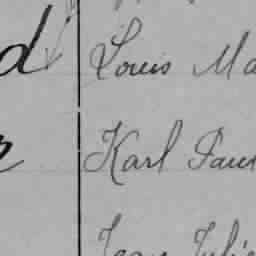 d Louis Ma
Karl Paul
Jean Julie